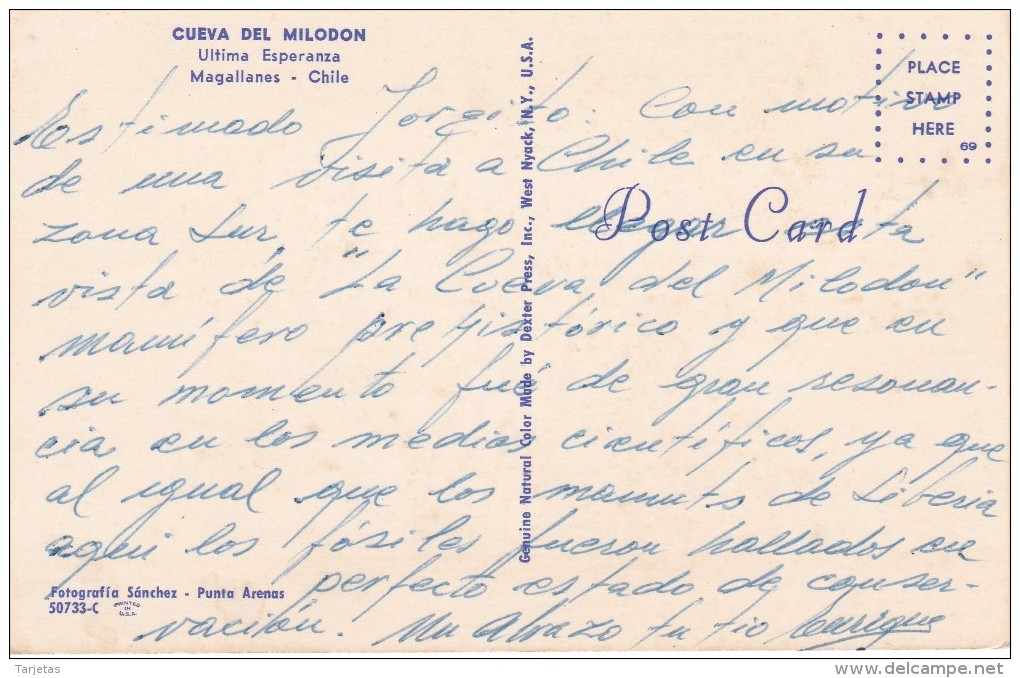 CUEVA DEL MILODON
Ultima Esperanza
Magallanes - Chile
PLACE
STAMP
HERE
69
Post Card
Genuine Natural Color Made by Dexter Press, Inc., West Nyack, N.Y., U.S.A.
Estimado Jorgito: Con motivo
de una visita a Chile en su
zona sur, te hago llegar esta
vista de "La Cueva del Milodon"
mamífero prehistórico y que en
su momento fué de gran resonan-
cia en los medios científicos, ya que
al igual que los mamuts de Siberia
aqui los fósiles fueron hallados en
perfecto estado de conser-
vación. Un Abrazo tu tio Enrique
Fotografía Sánchez - Punta Arenas
50733-C
PRINTED
IN
U.S.A.
Tarjetas
www.delcampe.net